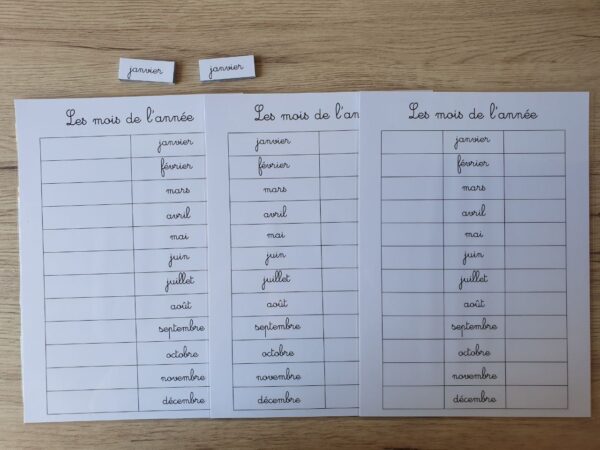 janvier
janvier
Les mois de l'année
janvier
février
mars
avril
mai
juin
juillet
août
septembre
octobre
novembre
décembre
Les mois de l'ann
janvier
février
mars
avril
mai
juin
juillet
août
septembre
octobre
novembre
décembre
Les mois de l'année
janvier
février
mars
avril
mai
juin
juillet
août
septembre
octobre
novembre
décembre